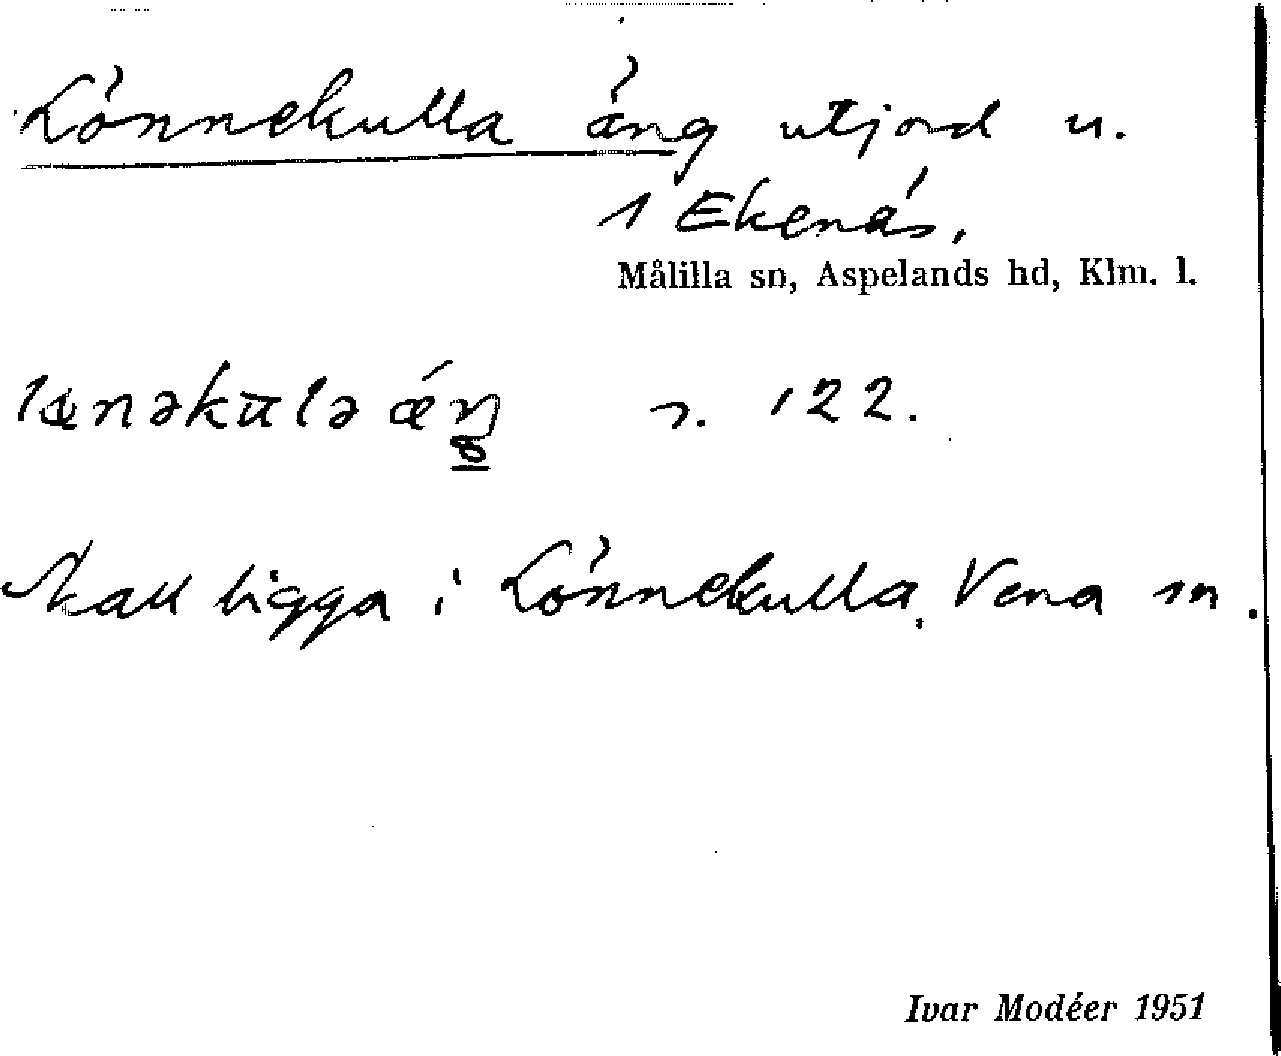 Lönnekulla äng utjord u.
1 Ekenäs.
Målilla sn, Aspelands hd, Klm. l.
lænəkulə ǽŋ s. 122.
Skall ligga i Lönnekulla, Vena sn.
Ivar Modéer 1951